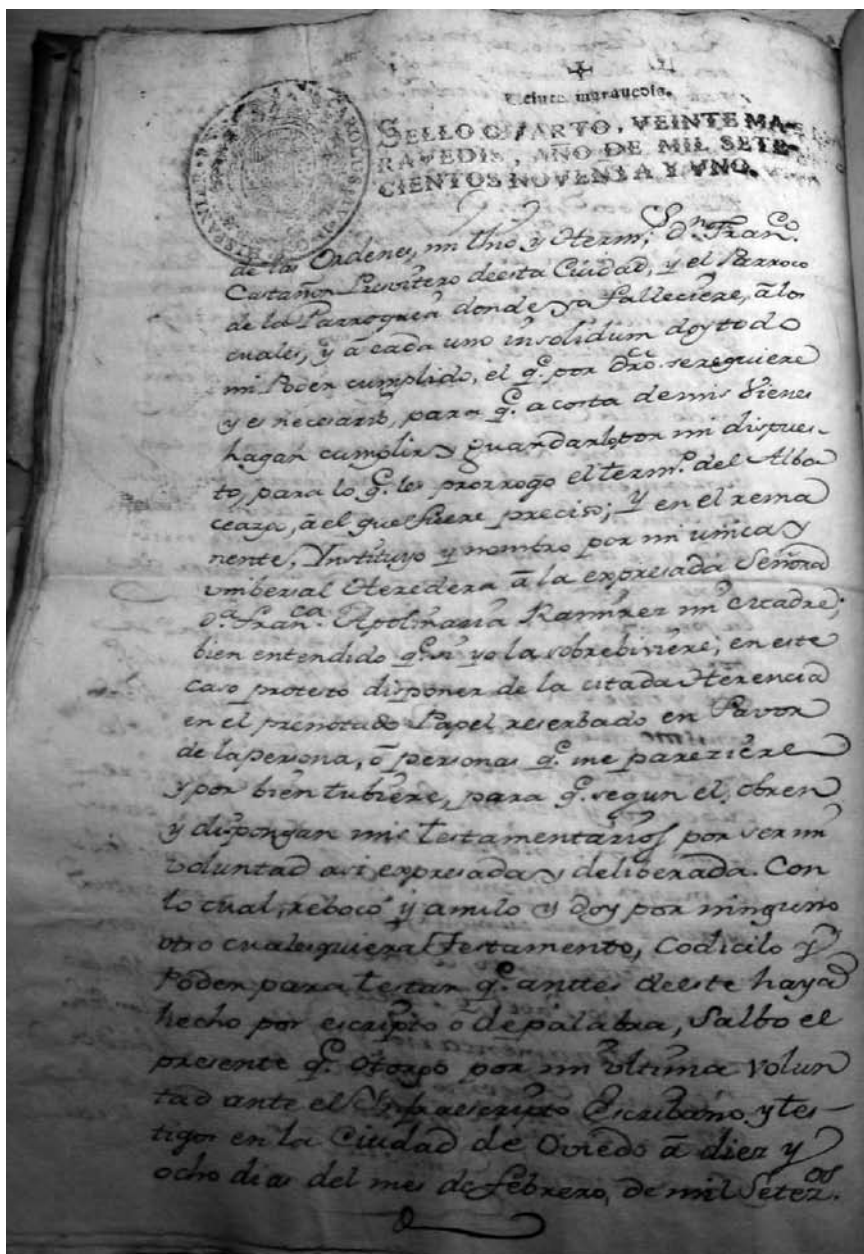 Veinte maravedis.
SELLO QUARTO, VEINTE MA-
RAVEDIS, AÑO DE MIL SETE-
CIENTOS NOVENTA Y VNO.
CAROLUS IV D G HISPANIAR
de las Ordenes, mi thio, y Herm; Sn Dn. Franco.
Castañon Presvitero deesta Ciudad, y el Parroco
de la Parroquia donde yo falleciere, â los
cuales, y â cada uno insolidum doy todo
mi Poder cumplido, el q.e por Dro. serequiere
y es necesario, para q.e acosta demis Vienes
hagan cumplir y guardar lo por mi dispues-
to, para lo q.e les prorrogo el term.o del Alba
ceazg, â el que fuere preciso; y en el rema
nente, Ynstituyo y nombro por mi unica y
vnibersal Heredera â la expresada Señora
D.a Fran.ca Apolinaria Ramirez mi Madre;
bien entendido q.e si yo la sobrebiviere; en este
caso protesto disponer de la citada Herencia
en el prenotado Papel reserbado en Favor
de la persona, ô personas q.e me pareziere
y por bien tubiere, para q.e segun el, obren
y dispongan mis testamentarios por ser mi
voluntad asi expresada y deliberada. Con
lo cual, reboco y anulo y doy por ninguno
otro cualesquiera Testamento, Codicilo y
Poder para testar q.e anttes deeste haya
hecho por escripto o de palabra, Salbo el
presente q.e otorgo por mi vltima volun
tad ante el Ynfraescripto Escribano, y tes-
tigos en la Ciudad de Oviedo â diez y
ocho dias del mes de Febrero, de mil Setez.os